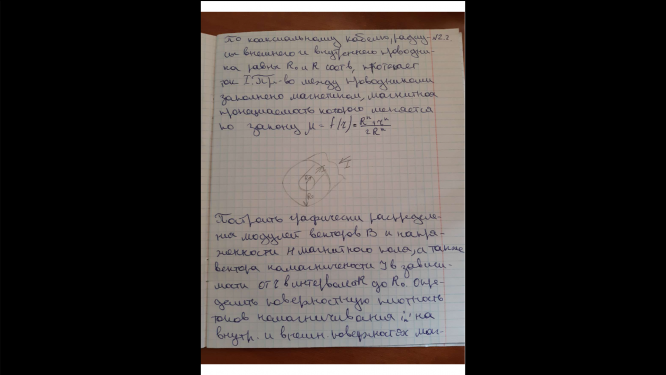 По коаксиальному кабелю, радиу- №2.2
сы внешнего и внутреннего проводни-
ка равны R₀ и R соотв, протекает
ток I. Пр-во между проводниками
заполнено магнетиком, магнитная
проницаемость которого меняется
по закону μ = f(r) = (Rⁿ+rⁿ)/(2Rⁿ)
I
Построить графически распределе-
ния модулей векторов B и напря-
женности H магнитного поля, а также
вектора намагниченности J в зависи-
мости от r в интервале R до R₀. Опре-
делить поверхностную плотность
токов намагничивания i' на
внутр. и внешн. поверхностях маг-